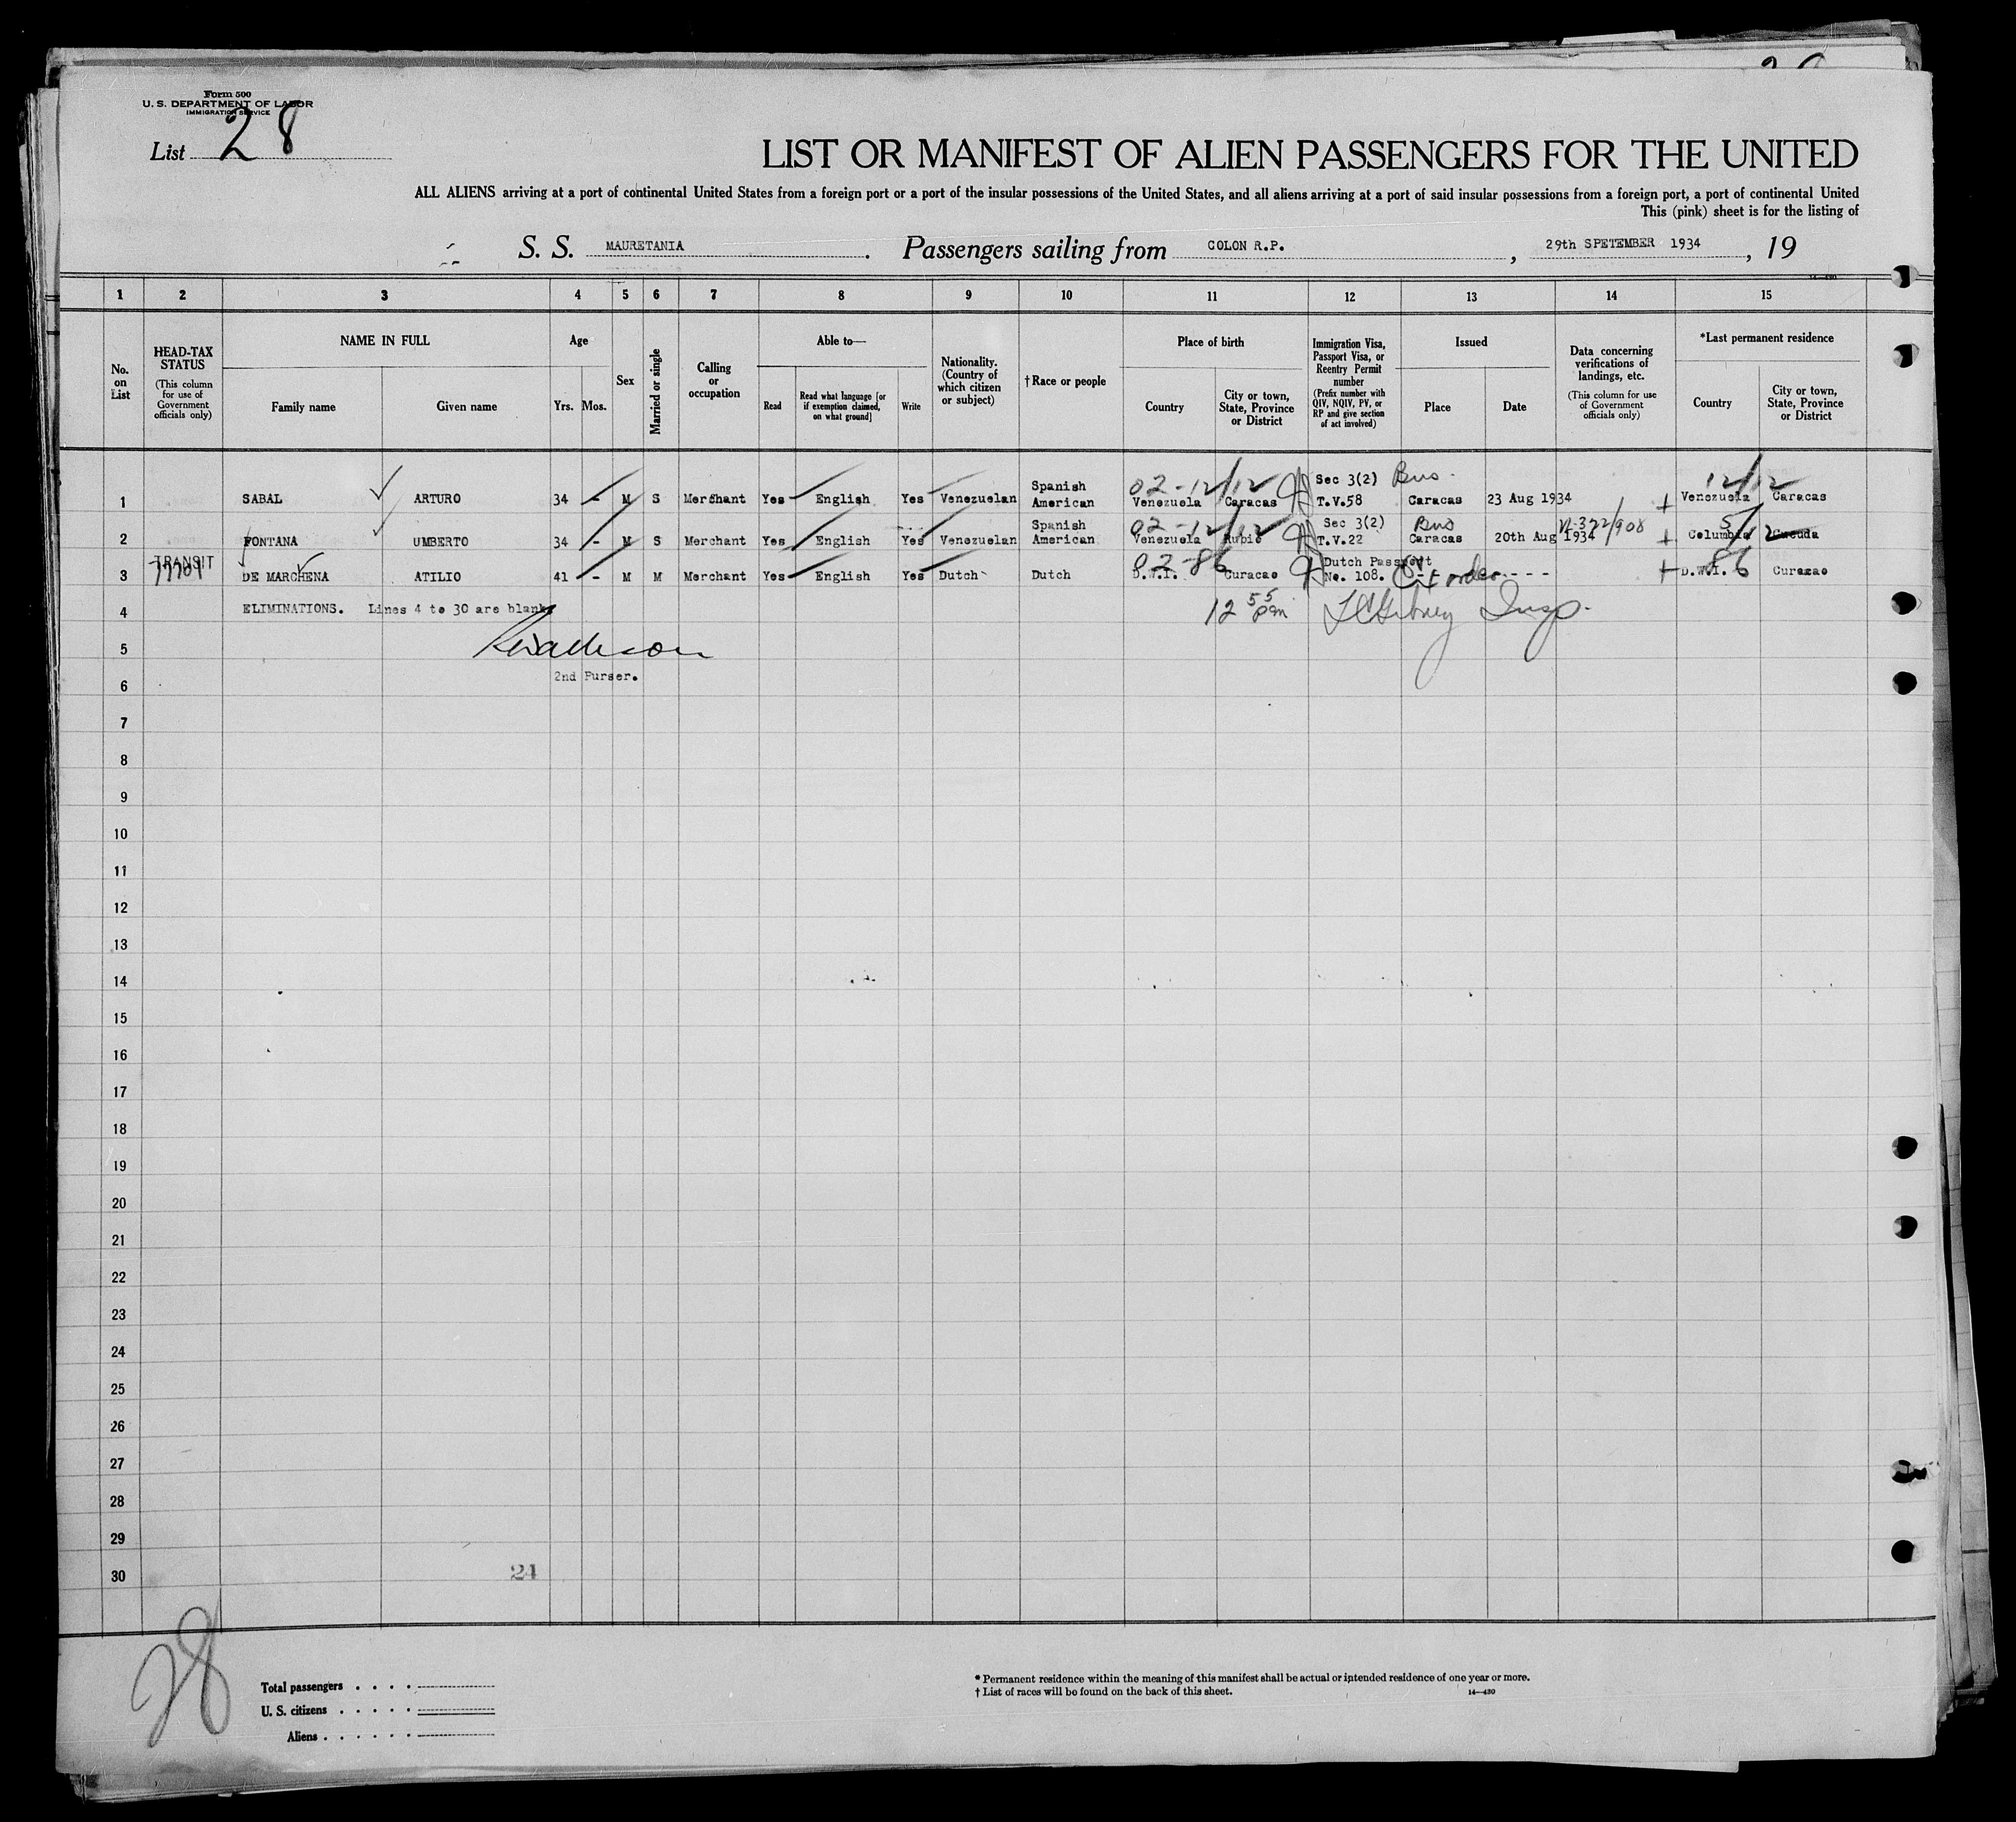 Form 500
U. S. DEPARTMENT OF LABOR
IMMIGRATION SERVICE
List 28
LIST OR MANIFEST OF ALIEN PASSENGERS FOR THE UNITED
ALL ALIENS arriving at a port of continental United States from a foreign port or a port of the insular possessions of the United States, and all aliens arriving at a port of said insular possessions from a foreign port, a port of continental United
This (pink) sheet is for the listing of
S. S. MAURETANIA. Passengers sailing from COLON R.P., 29th SPETEMBER 1934, 19
14—430
1 2 3 4 5 6 7 8 9 10 11 12 13 14 15
No. on List
HEAD-TAX STATUS (This column for use of Government officials only)
NAME IN FULL
Family name Given name
Age
Yrs. Mos.
Sex
Married or single
Calling or occupation
Able to—
Read
Read what language [or if exemption claimed, on what ground]
Write
Nationality. (Country of which citizen or subject)
†Race or people
Place of birth
Country
City or town, State, Province or District
Immigration Visa, Passport Visa, or Reentry Permit number (Prefix number with QIV, NQIV, PV, or RP and give section of act involved)
Issued
Place Date
Data concerning verifications of landings, etc. (This column for use of Government officials only)
*Last permanent residence
Country
City or town, State, Province or District
1 SABAL ARTURO 34 - M S Merchant Yes English Yes Venezuelan Spanish American 02-12/12 Venezuela Caracas Sec 3(2) T.V.58 Bus Caracas 23 Aug 1934 12/12 Venezuela Caracas
2 FONTANA UMBERTO 34 - M S Merchant Yes English Yes Venezuelan Spanish American 02-12/12 Venezuela Rubio Sec 3(2) T.V.22 Bus Caracas 20th Aug 1934 VL-372/908 5/12 Columbia Cucuda
3 TRANSIT DE MARCHENA ATILIO 41 - M M Merchant Yes English Yes Dutch Dutch 02-86 D.W.I. Curacao Dutch Passport No. 108. order 86 D.W.I. Curazao
4 ELIMINATIONS. Lines 4 to 30 are blank 12 55 pm Insp.
5
2nd Purser.
6
7
8
9
10
11
12
13
14
15
16
17
18
19
20
21
22
23
24
25
26
27
28
29
30
24
28
Total passengers . . . .
U. S. citizens . . . . .
Aliens . . . . . .
* Permanent residence within the meaning of this manifest shall be actual or intended residence of one year or more.
† List of races will be found on the back of this sheet. 14—430